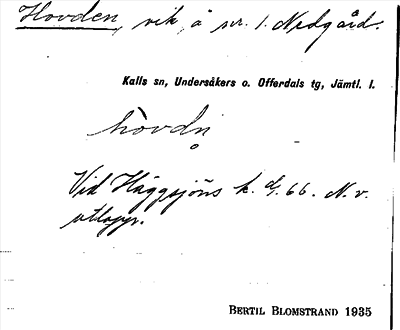 Hovden, vik, å nr. 1. Nedgård.
Kalls sn, Undersåkers o. Offerdals tg, Jämtl. l.
hòvdn̥
Vid Häggsjöns k. bl. 66. N. v.
utlopp.
BERTIL BLOMSTRAND 1935